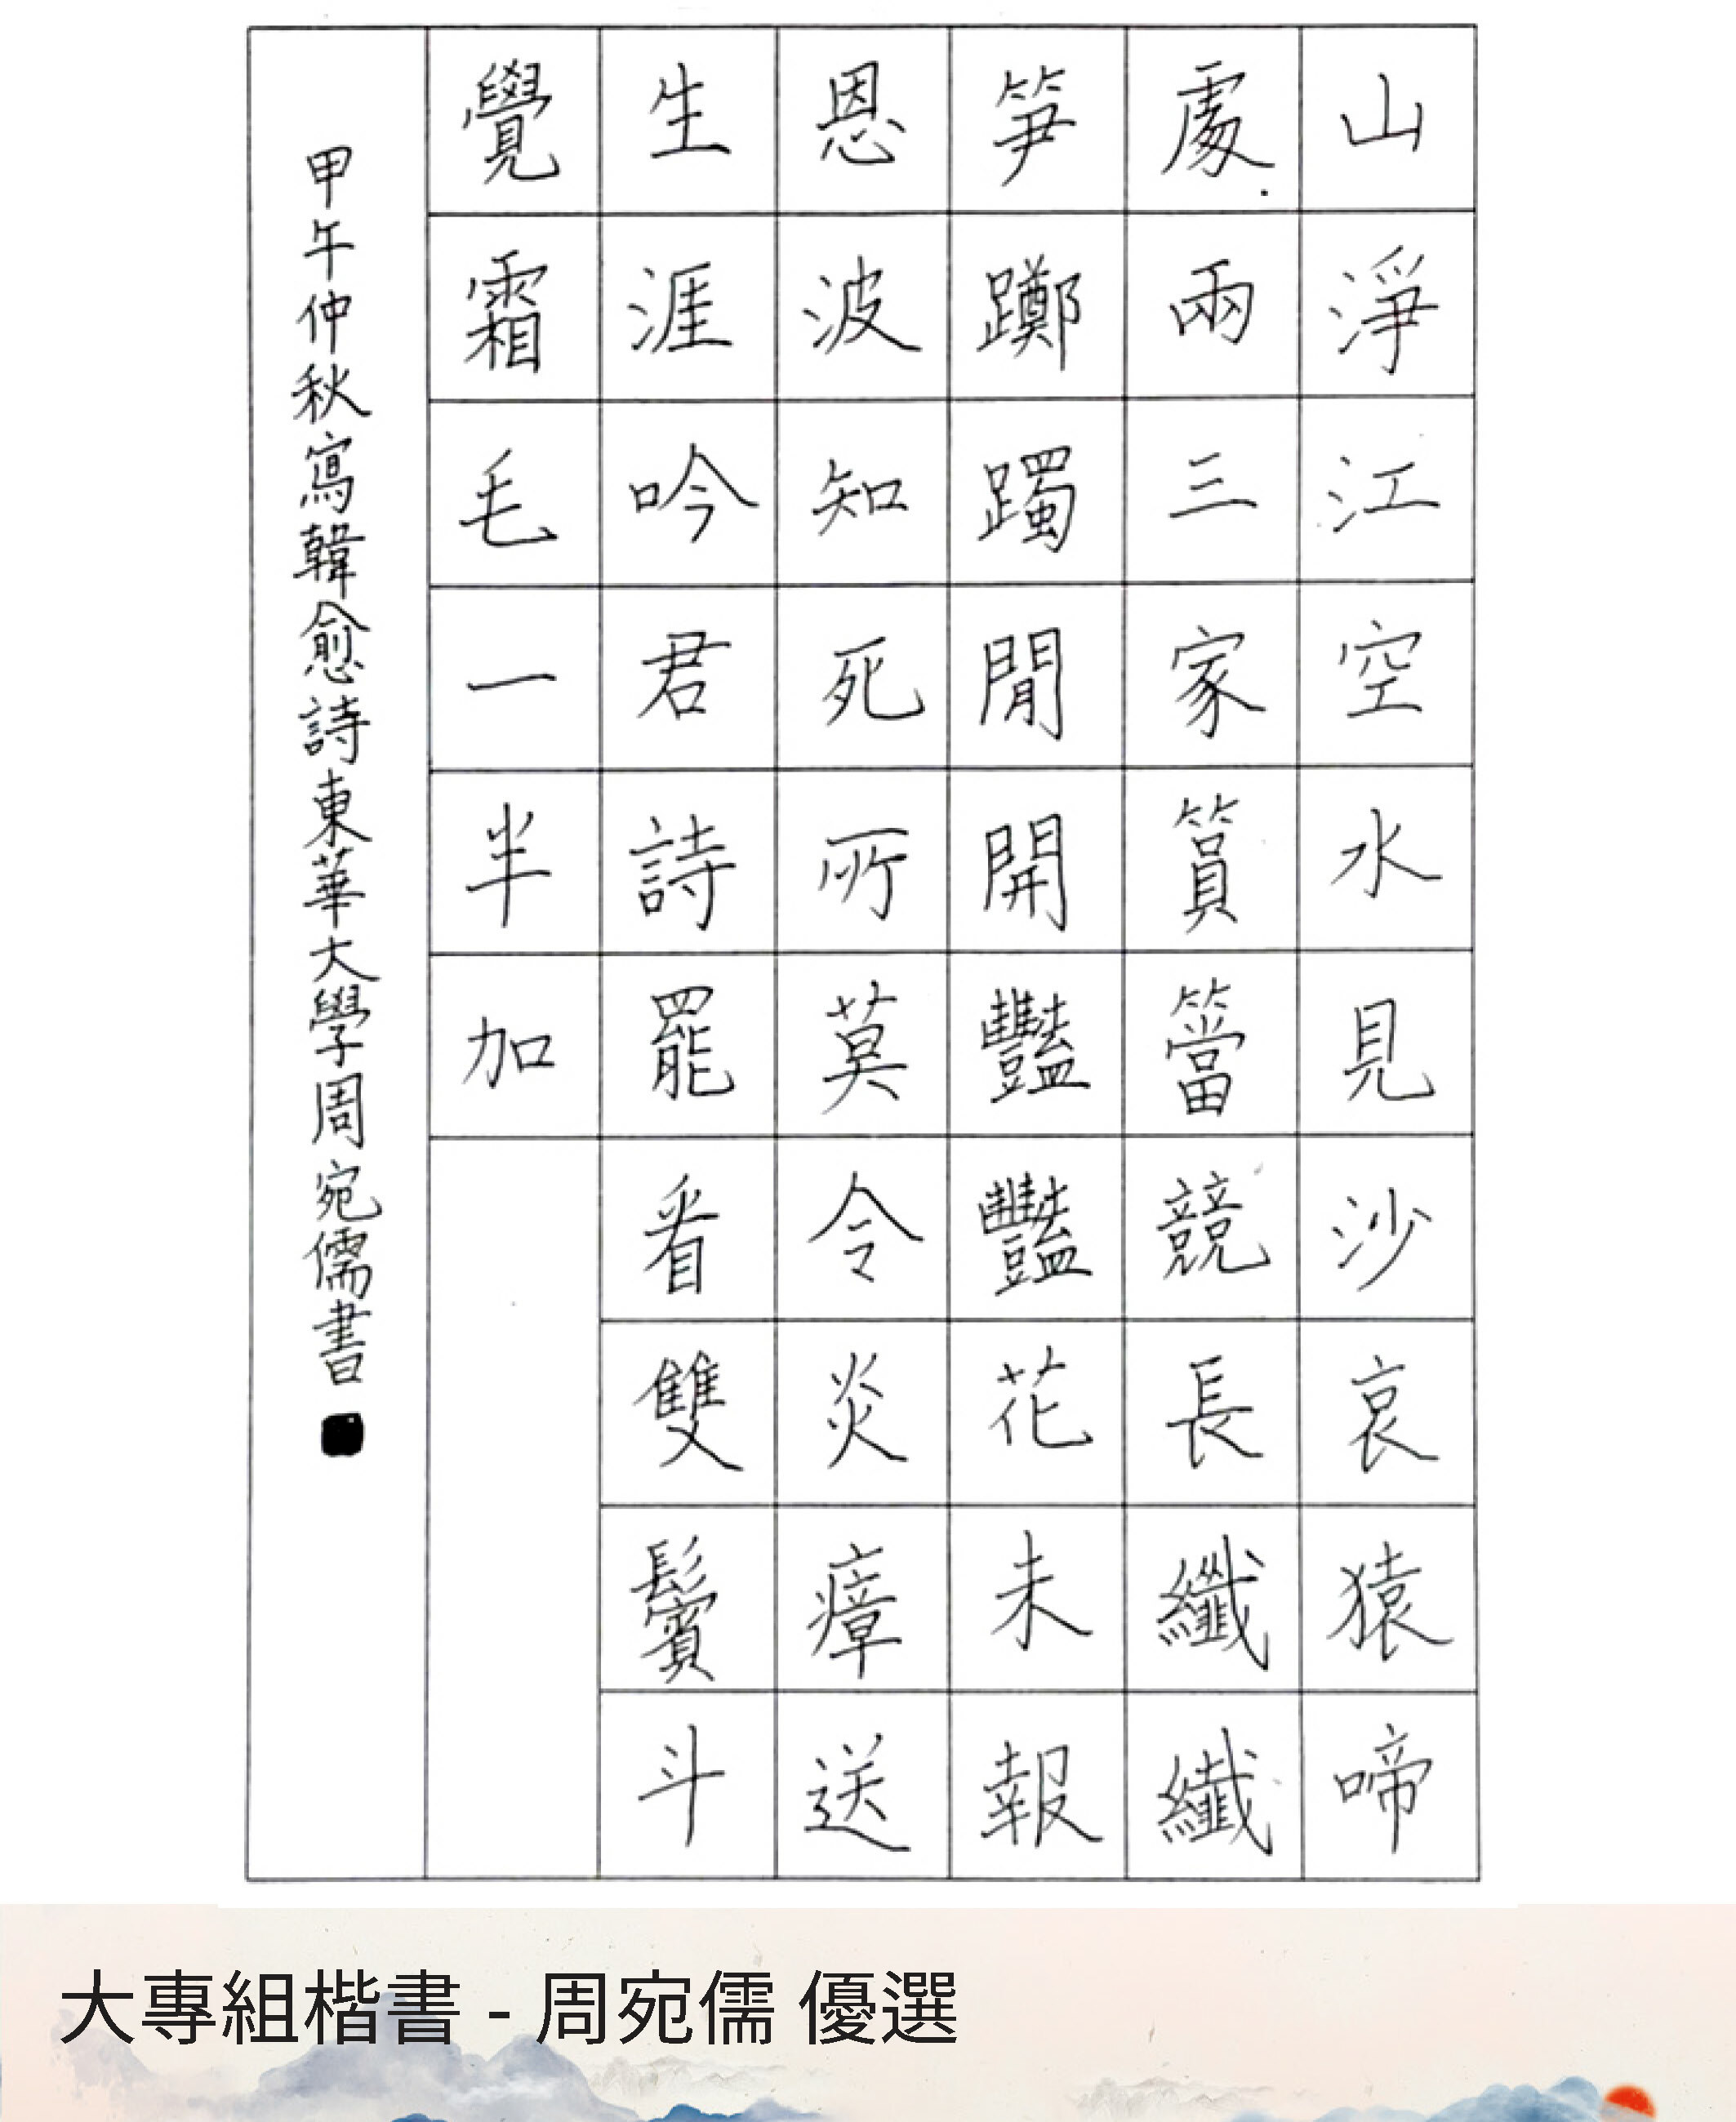 山淨江空水見沙哀猿啼
處兩三家篔簹競長纖纖
笋躑躅閒開豔豔花未報
恩波知死所莫令炎瘴送
生涯吟君詩罷看雙鬢斗
覺霜毛一半加
甲午仲秋寫韓愈詩東華大學周宛儒書
大專組楷書 - 周宛儒 優選